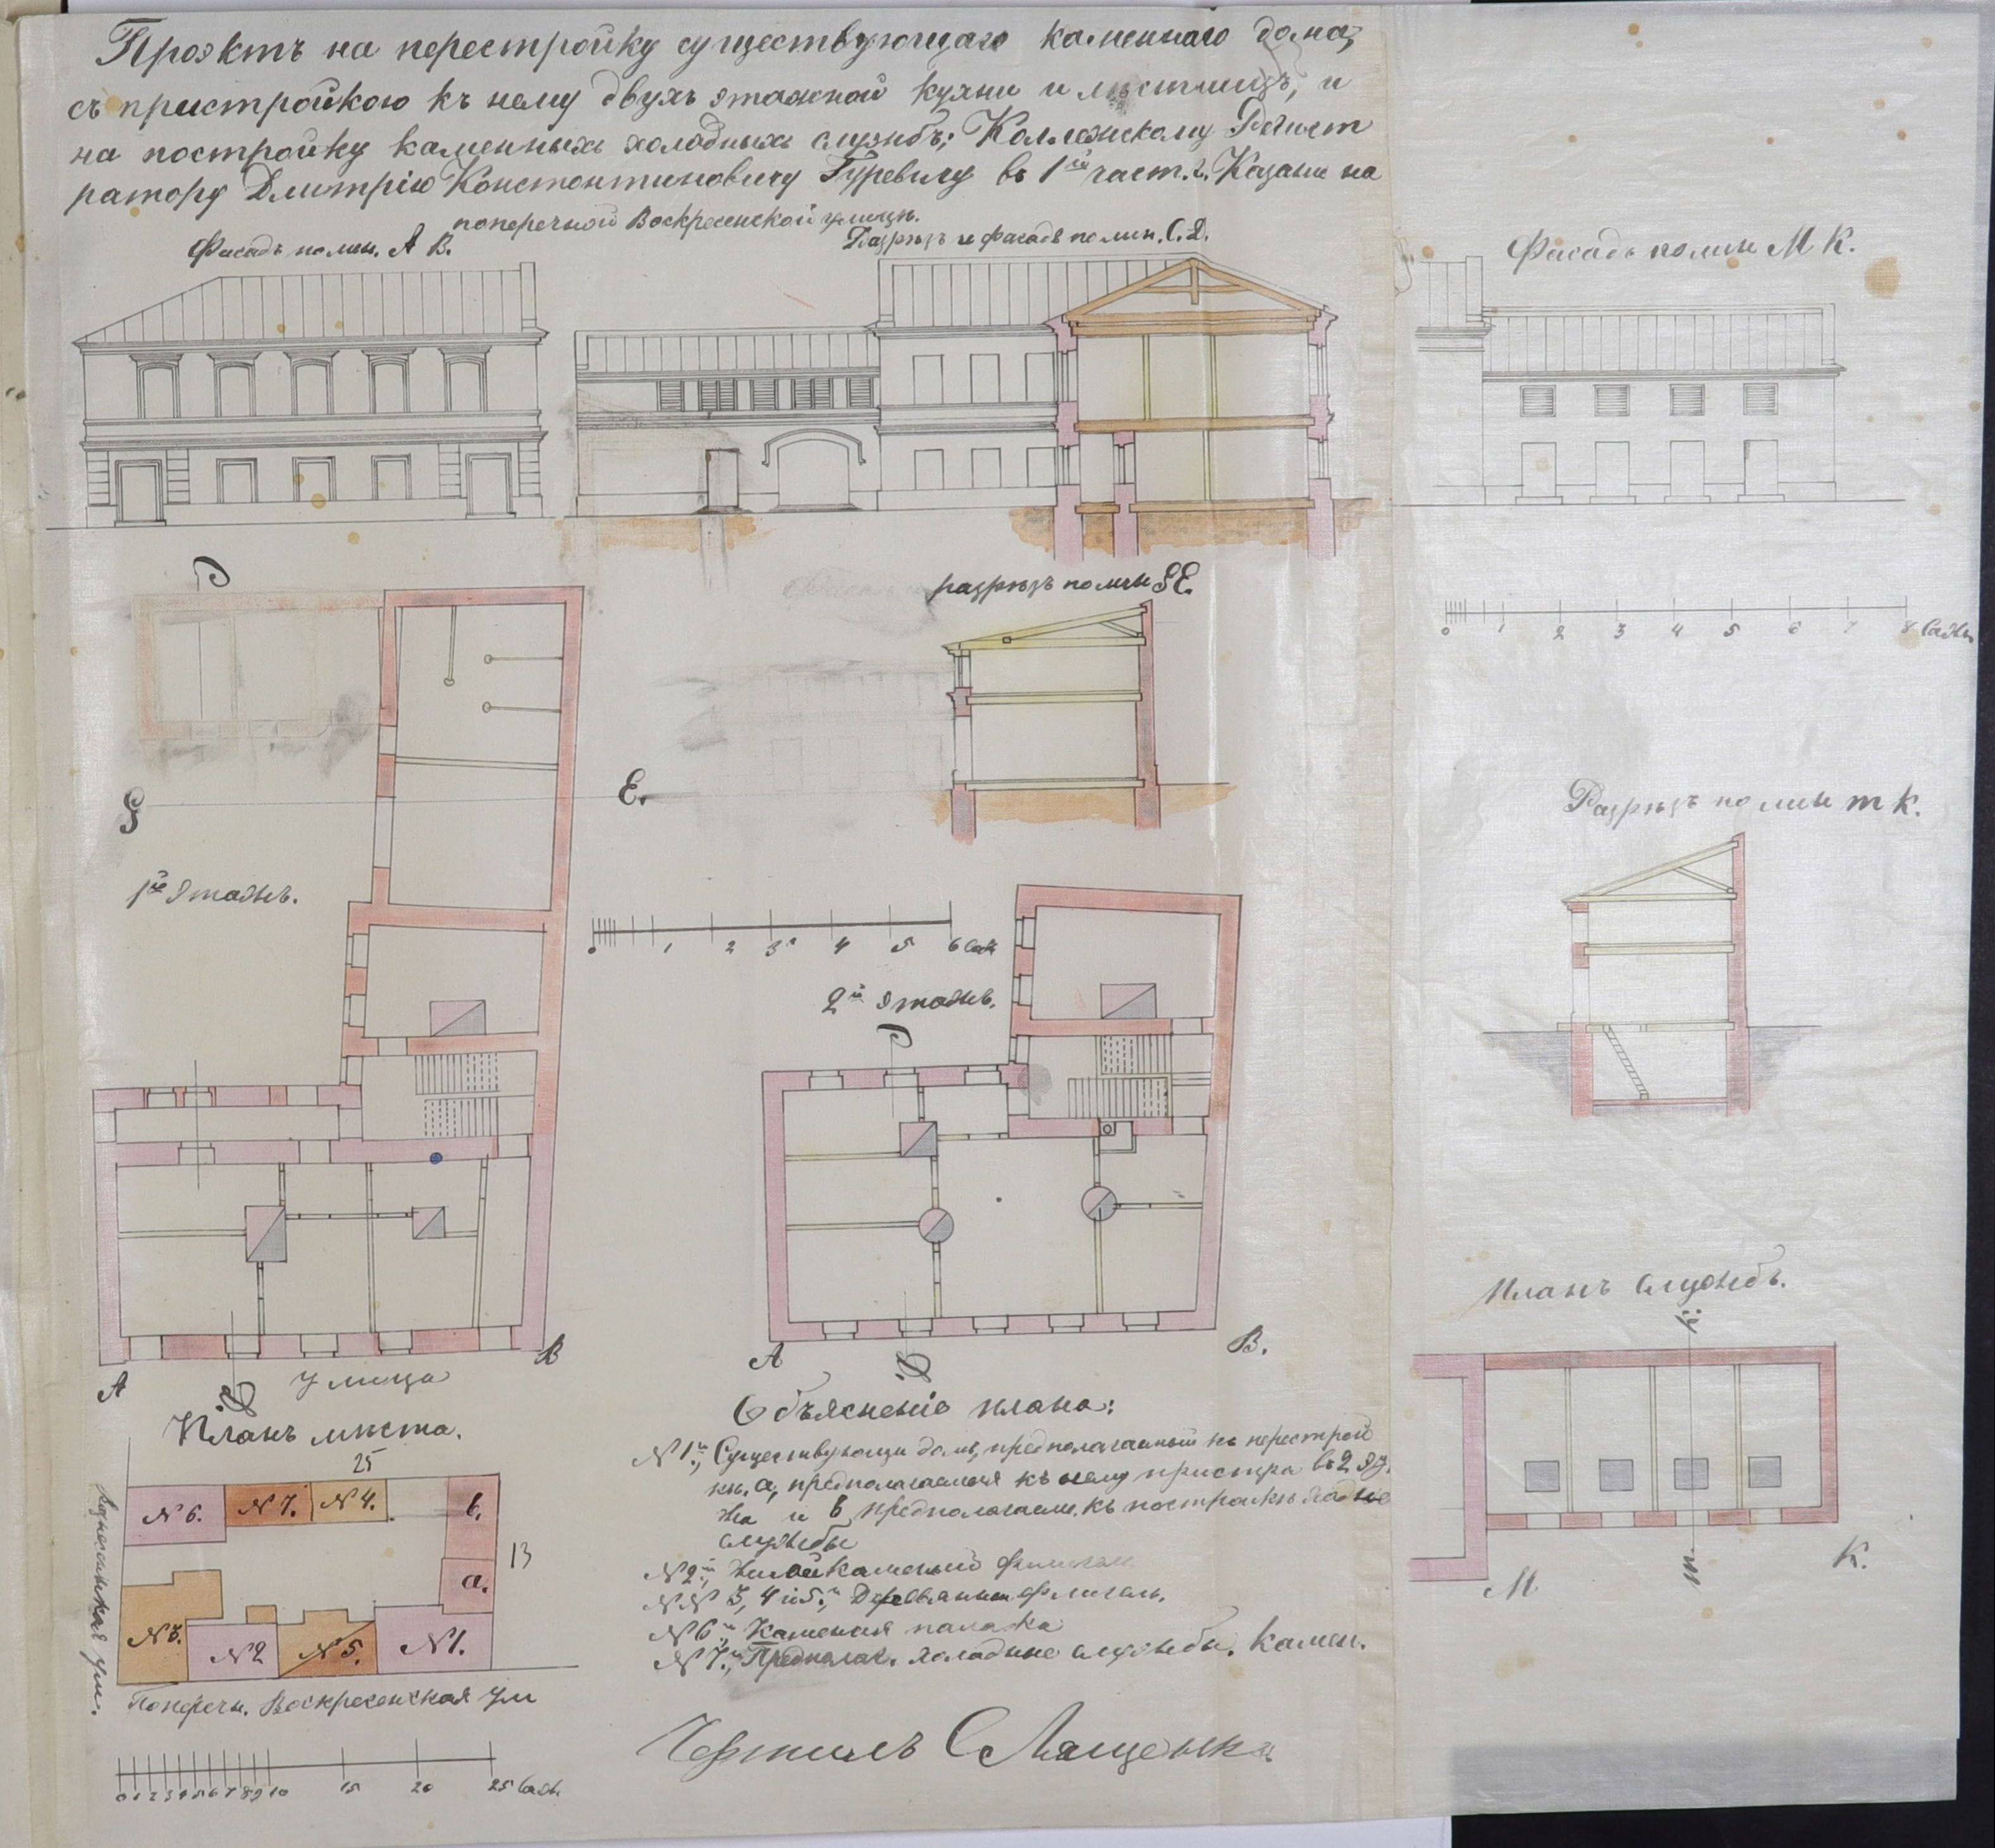 Проэктъ на перестройку существующаго каменнаго дома,
съ пристройкою къ нему двухъ этажной кухни и лѣстницъ, и
на постройку каменныхъ холодныхъ службъ; Коллежскому Регист
ратору Дмитрію Константиновичу Гуревичу въ 1ой част. г. Казани на
поперечной Воскресенской улицѣ.
Фасадъ по лин. А В.
Разрѣзъ и фасадъ по лин. С. D.
Фасадъ по лин М К.
0 1 2 3 4 5 6 7 8 Сажъ
С
разрѣзъ по лин GE.
G
E.
Разрѣзъ по лин т К.
1й этажъ.
0 1 2 3 4 5 6 Саж
2й этажъ.
С
Планъ службъ.
к
А
D
В
Улица
А
D
В.
М
т.
К.
Планъ мѣста.
25
13
N 6.
N 7.
N 4.
в.
а.
N 3.
N 2
N 5.
N 1.
ул.
Попереч. Воскресенская ул
0 1 2 3 4 5 6 7 8 9 10 15 20 25 Саж.
Объясненіе плана:
N 1й, Существующи домъ, предполагаемый къ перестрой
кѣ. а, предполагаемая къ нему пристра въ 2 эта
жа и в предполагаем. къ постройкѣ
службы
N 2й, Жилой каменый флигель
NN 3, 4 и 5й, Деревянныи флигель.
N 6й, Каменая палатка
N 7й, Предполаг. холодные службы. камен.
Чертилъ С Лященко